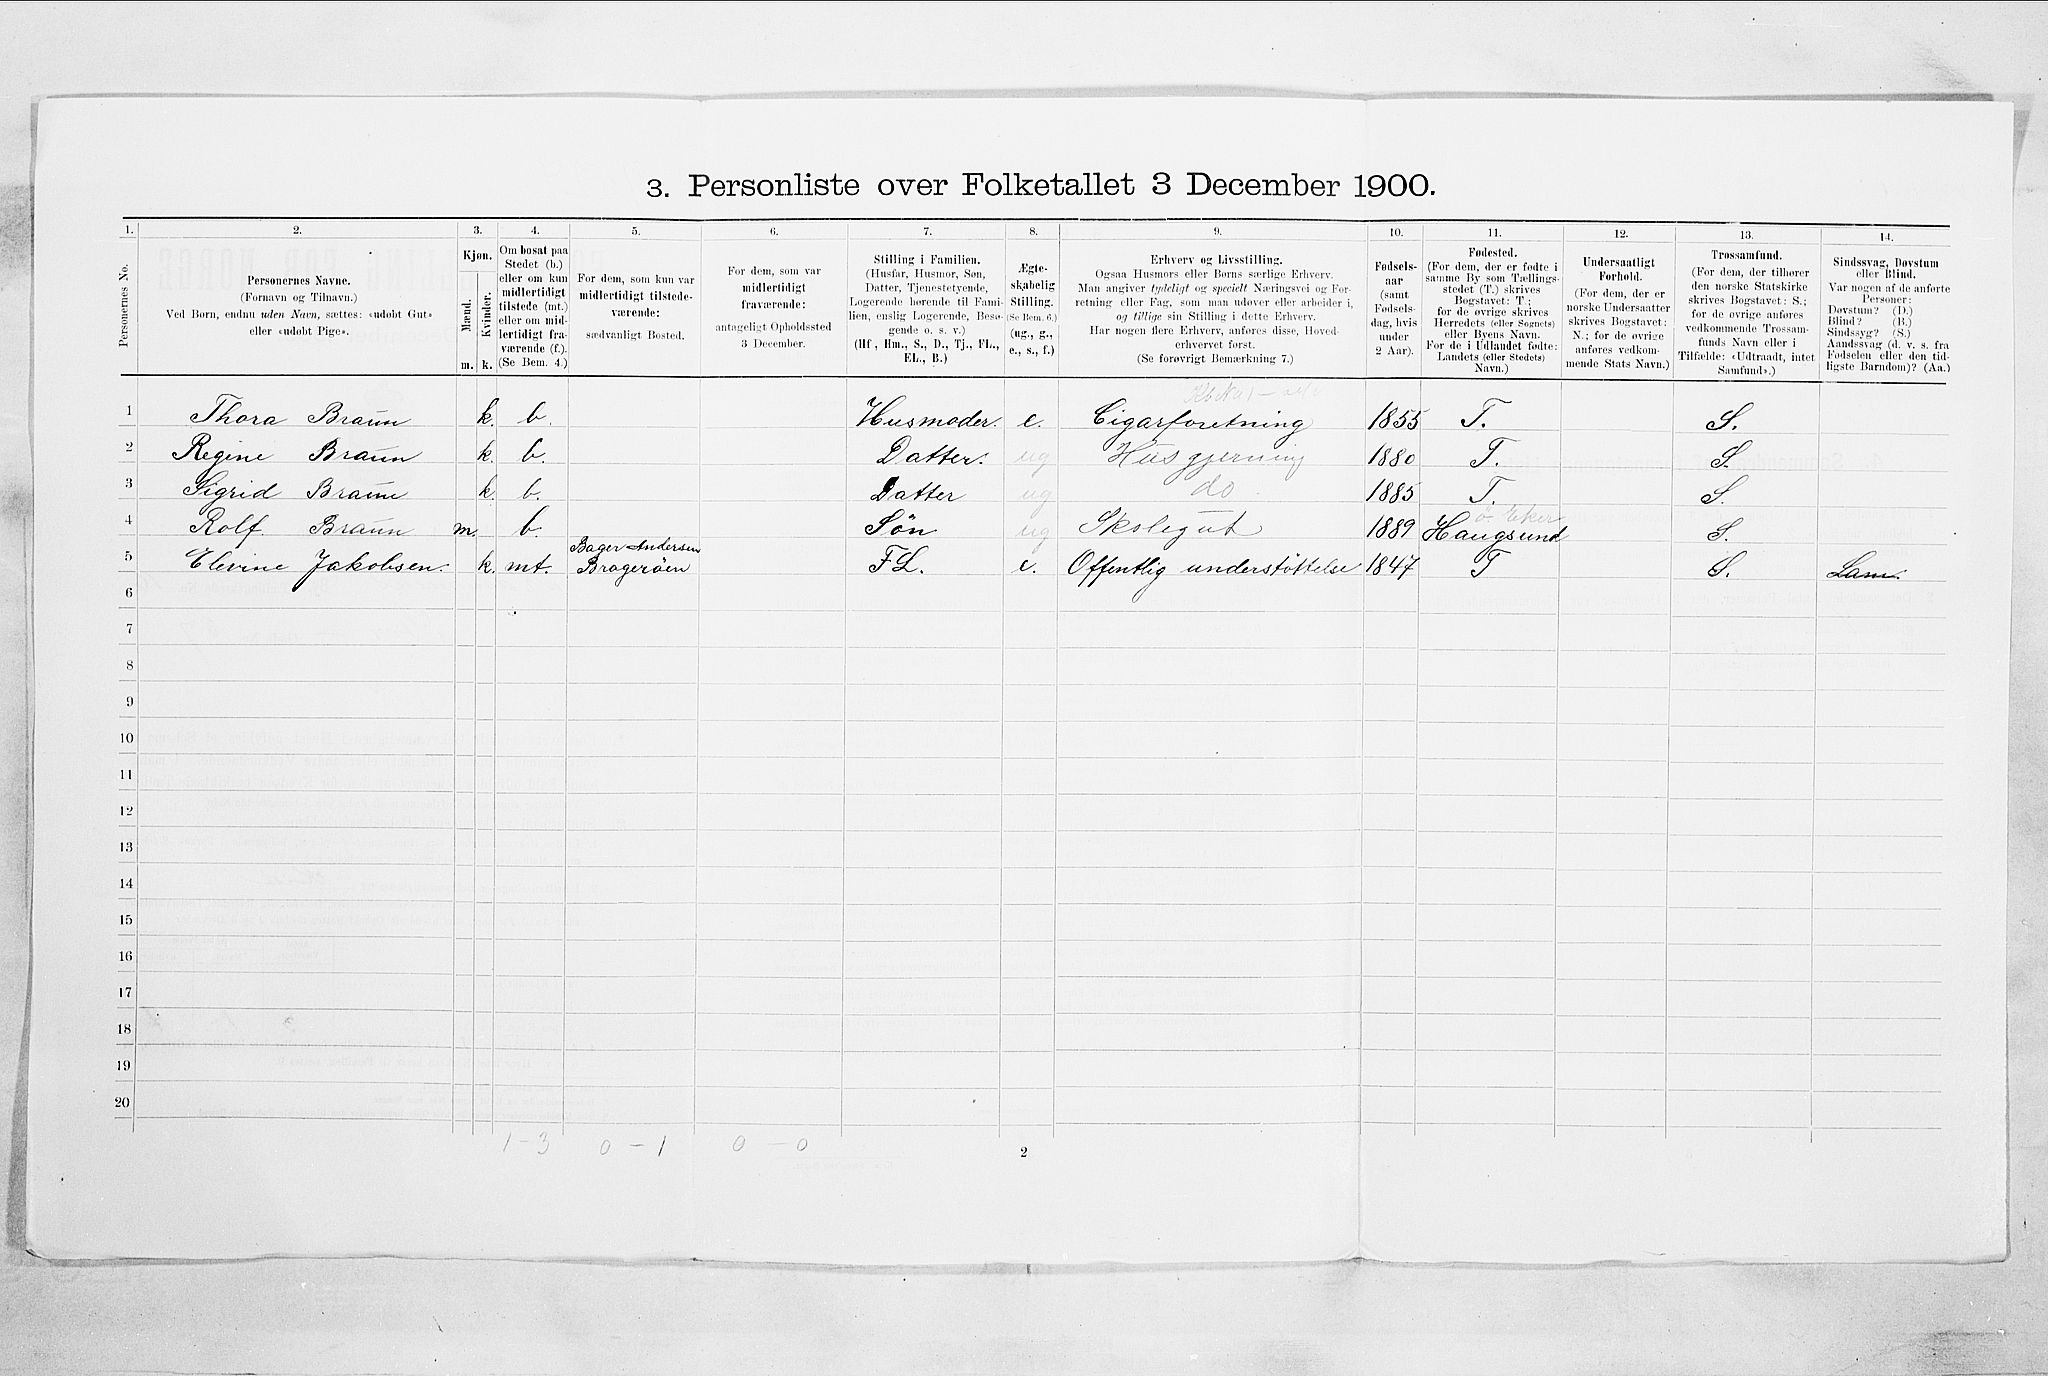 3. Personliste over Folketallet 3 December 1900.
1. 2. 3. 4. 5. 6. 7. 8. 9. 10. 11. 12. 13. 14.
Personernes No.
Personernes Navne.
(Fornavn og Tilnavn.)
Ved Børn, endnu uden Navn, sættes: «udøbt Gut»
eller «udøbt Pige».
Kjøn.
Mænd.
Kvinder.
m. k.
Om bosat paa
Stedet (b.)
eller om kun
midlertidigt
tilstede (mt.)
eller om mid-
lertidigt fra-
værende (f.).
(Se Bem. 4.)
For dem, som kun var
midlertidigt tilstede-
værende:
sædvanligt Bosted.
For dem, som var
midlertidigt
fraværende:
antageligt Opholdssted
3 December.
Stilling i Familien.
(Husfar, Husmor, Søn,
Datter, Tjenestetyende,
Logerende hørende til Fami-
lien, enslig Logerende, Besø-
gende o. s. v.)
(Hf., Hm., S., D., Tj., FL.,
EL., B.)
Ægte-
skabelig
Stilling.
(Se Bem. 6.)
(ug., g.,
e., s., f.)
Erhverv og Livsstilling.
Ogsaa Husmors eller Børns særlige Erhverv.
Man angiver tydeligt og specielt Næringsvei og For-
retning eller Fag, som man udøver eller arbeider i,
og tillige sin Stilling i dette Erhverv.
Har nogen flere Erhverv, anføres disse, Hoved-
erhvervet først.
(Se forøvrigt Bemærkning 7.)
Fødsels-
aar
(samt
Fødsels-
dag, hvis
under
2 Aar).
Fødested.
(For dem, der er fødte i
samme By som Tællings-
stedet (T.) skrives
Bogstavet: T.;
for de øvrige skrives
Herredets (eller Sognets)
eller Byens Navn.
For de i Udlandet fødte:
Landets (eller Stedets)
Navn.)
Undersaatligt
Forhold.
(For dem, der er
norske Undersaatter
skrives Bogstavet:
N.; for de øvrige
anføres vedkom-
mende Stats Navn.)
Trossamfund.
(For dem, der tilhører
den norske Statskirke
skrives Bogstavet: S.;
for de øvrige anføres
vedkommende Trossam-
funds Navn eller i
Tilfælde: «Udtraadt, intet
Samfund».)
Sindssvag, Døvstum
eller Blind.
Var nogen af de anførte
Personer:
Døvstum? (D.)
Blind? (B.)
Sindssyg? (S.)
Aandssvag (d. v. s. fra
Fødselen eller den tid-
ligste Barndom)? (Aa.)
1 Thora Braun k. b. Husmoder. e. Cigarforetning 1855 T. S.
2 Regine Braun k. b. Datter. ug Husgjerning 1880 T. S.
3 Sigrid Braun k. b. Datter ug do 1885 T. S.
ö. Eker
4 Rolf Braun m. b. Søn ug Skolegut 1889 Haugsund S.
Bager Andersen
5 Elevine Jakobsen. k. mt. Bragerøen FL. e. Offentlig understøttelse 1847 T S. Lam.
6
7
8
9
10
11
12
13
14
15
16
17
18
19
20
1-3 0-1 0-0
2